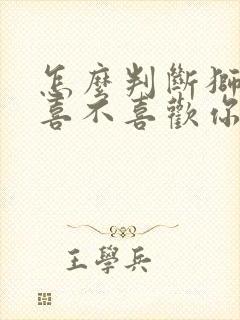 怎麼判斷獅
喜不喜歡你
王學兵